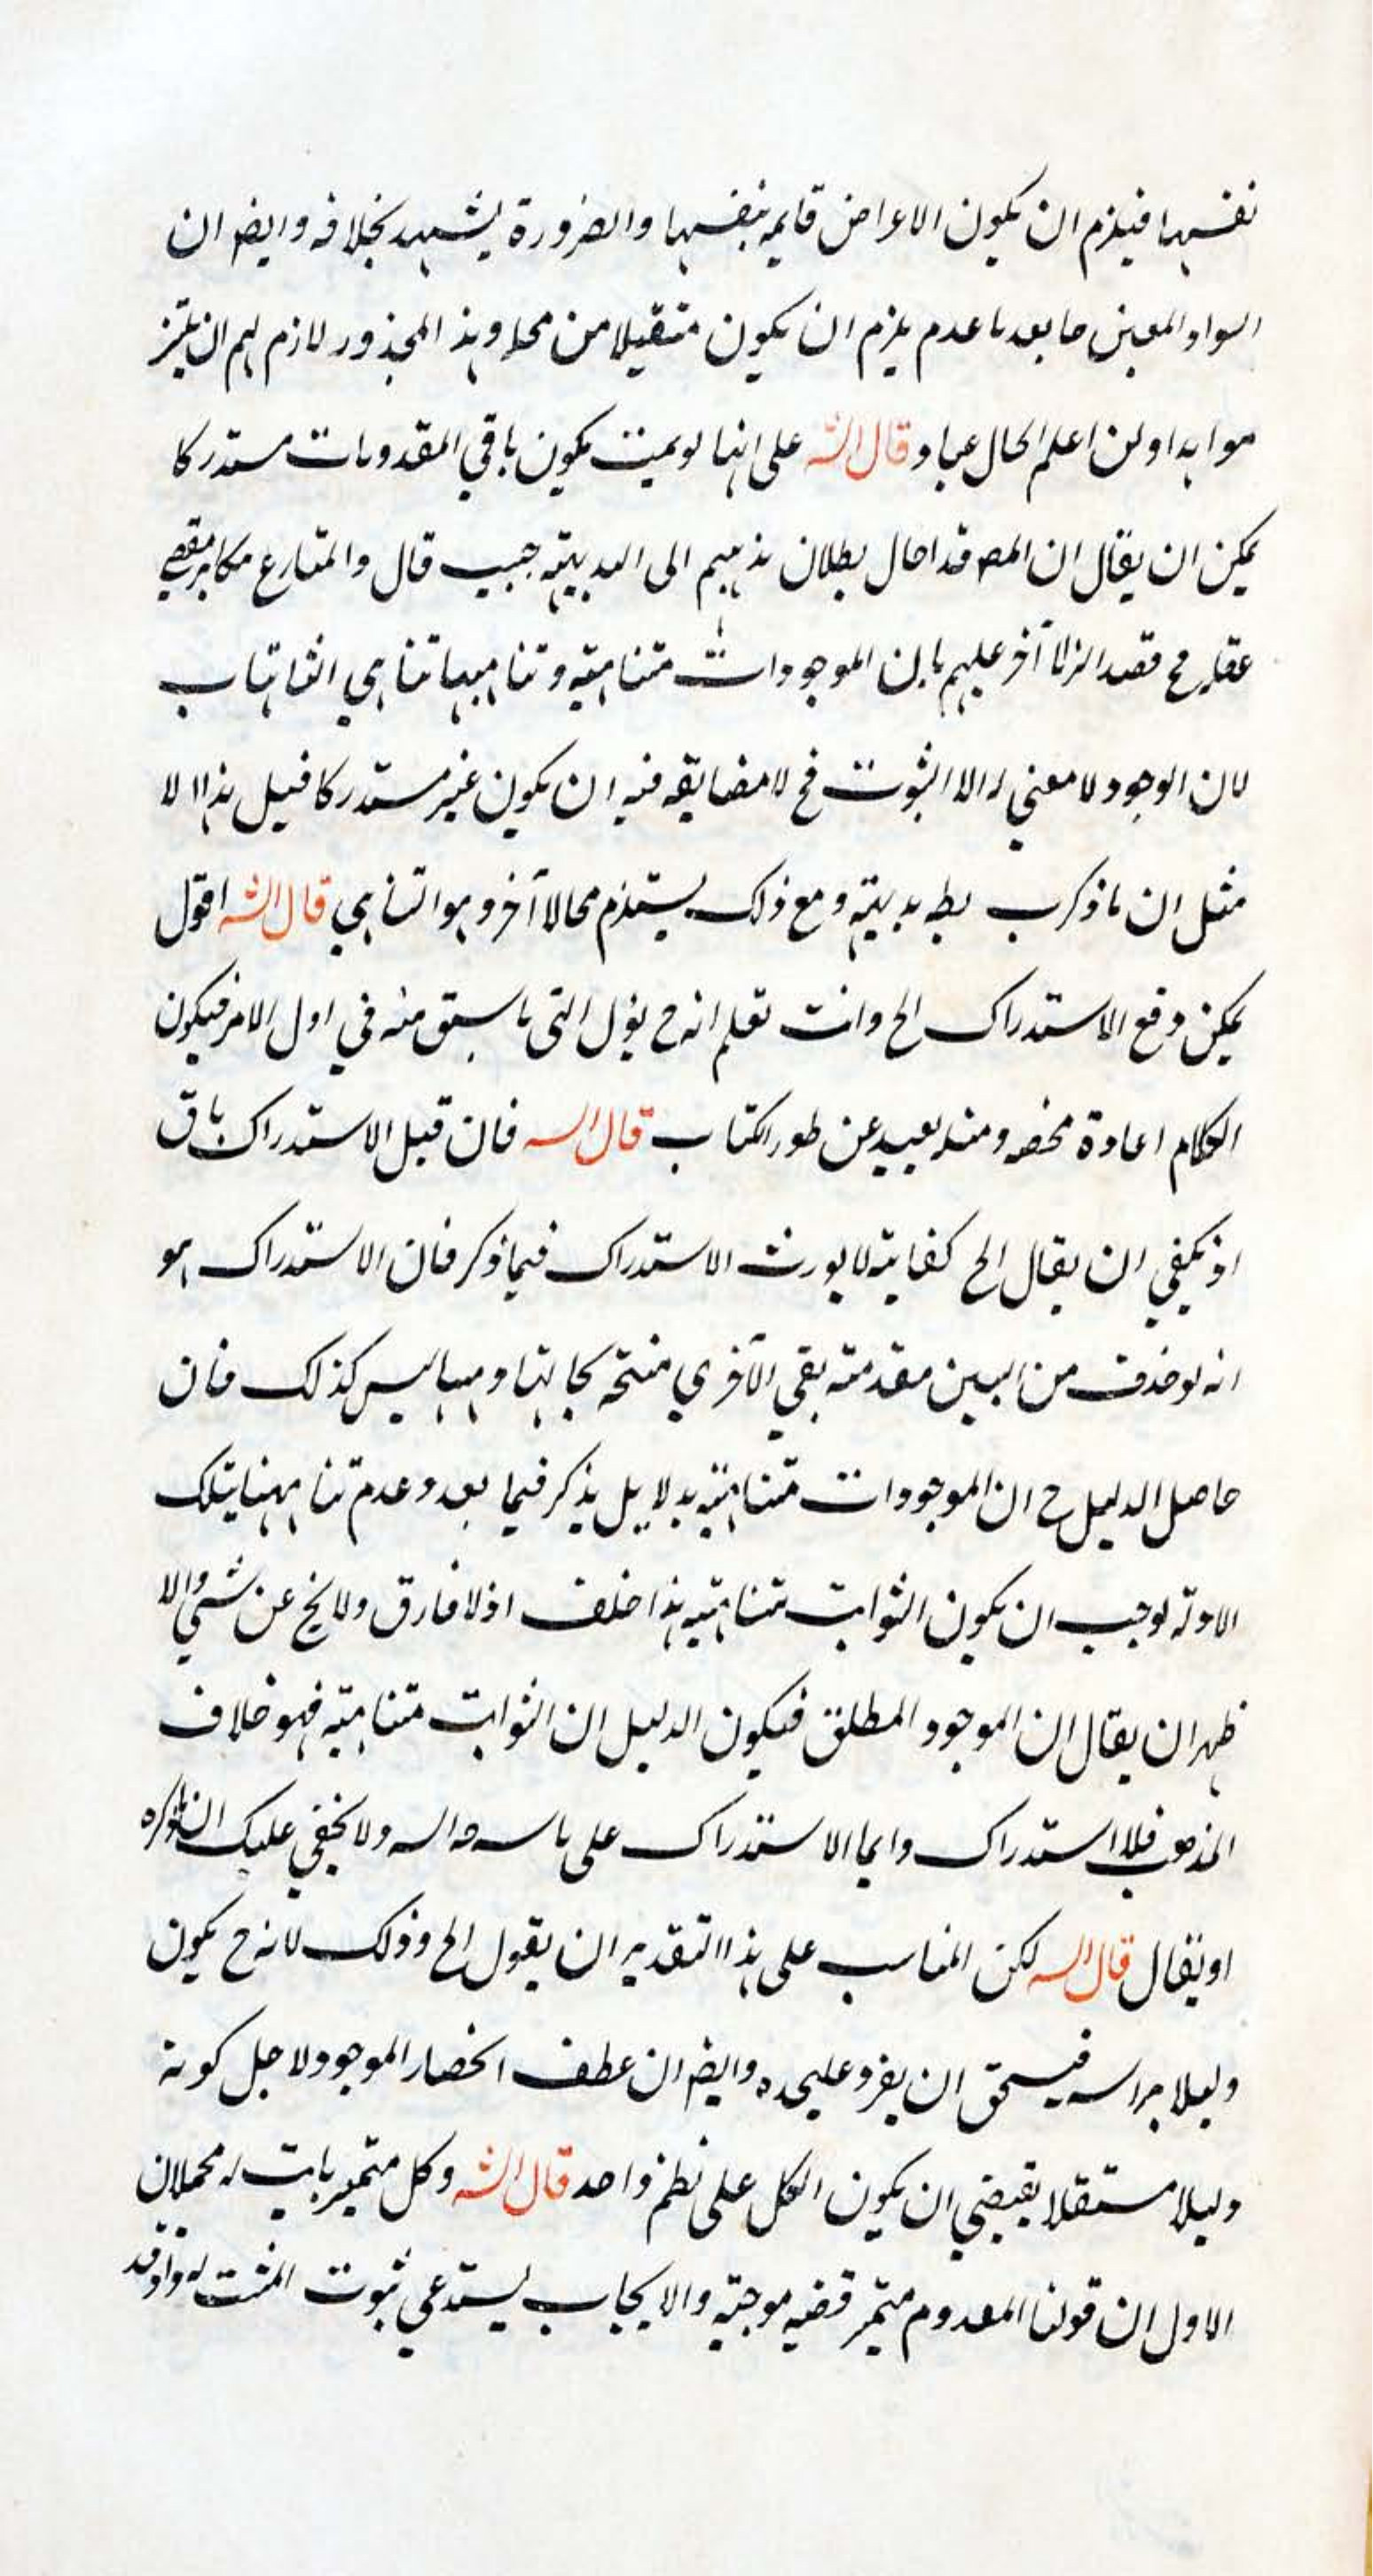 نفسها فيلزم ان يكون الاعراض قايمة بنفسها والضرورة يشهد بخلافه وايضا ان
السواد المعين ما بعد ما عدم يلزم ان يكون منتقلا من محله وهذا المحذور لازم لهم ان يلتز
موا به اولن اعلم الحال عباد قال الش على انها لو تمت يكون باقي المقدمات مستدركا
يمكن ان يقال ان المص قد احال بطلان مذهبهم الى البديهية حيث قال والمنازع مكابر مقتضى
عقله ح قصد الزاما آخر عليهم بان الموجودات متناهية وتناهيها تناهي الثابتات
لان الوجود لا معنى له الا الثبوت فح لا مضايقة فيه ان يكون غير مستدركا قيل هذا الا
مثل ان ما ذكرت بط بديهية ومع ذلك يستلزم محالا آخر وهو التناهي قال الش اقول
يمكن دفع الاستدراك الخ وانت تعلم انه ح يؤل الى ما سبق منه في اول الامر فيكون
الكلام اعادة محضه ومثله بعيد عن طور الكتاب قال الش فان قيل الاستدراك باق
اذ يكفي ان يقال الخ كفايته لا يورث الاستدراك فيما ذكر فان الاستدراك هو
انه لو حذف من البين مقدمة بقي الأخرى منتجة بحالتها وههنا ليس كذلك فان
حاصل الدليل ح ان الموجودات متناهية بدلايل يذكر فيما بعد وعدم تناهيها بتلك
الادلة توجب ان يكون الثوابت متناهية هذا خلف اذ لا فارق ولا يخ عن شيء والا
ظهر ان يقال ان الموجود المطلق فيكون الدليل ان الثوابت متناهية فهو خلاف
المذهب فلا استدراك وانما الاستدراك على ما الش ولا يخفى عليك ان ما ذكره
او يقال قال الش لكن المناسب على هذا التقدير ان يقول الخ وذلك لانه ح يكون
دليلا براسه فيستحق ان يفرد عليحده وايضا ان عطف انحصار الموجود لاجل كونه
دليلا مستقلا يقتضي ان يكون الكل على نظم واحد قال الش وكل متميز ثابت له محملان
الاول ان قولنا المعدوم متميز قضيه موجبة والايجاب يستدعي ثبوت المثبت له